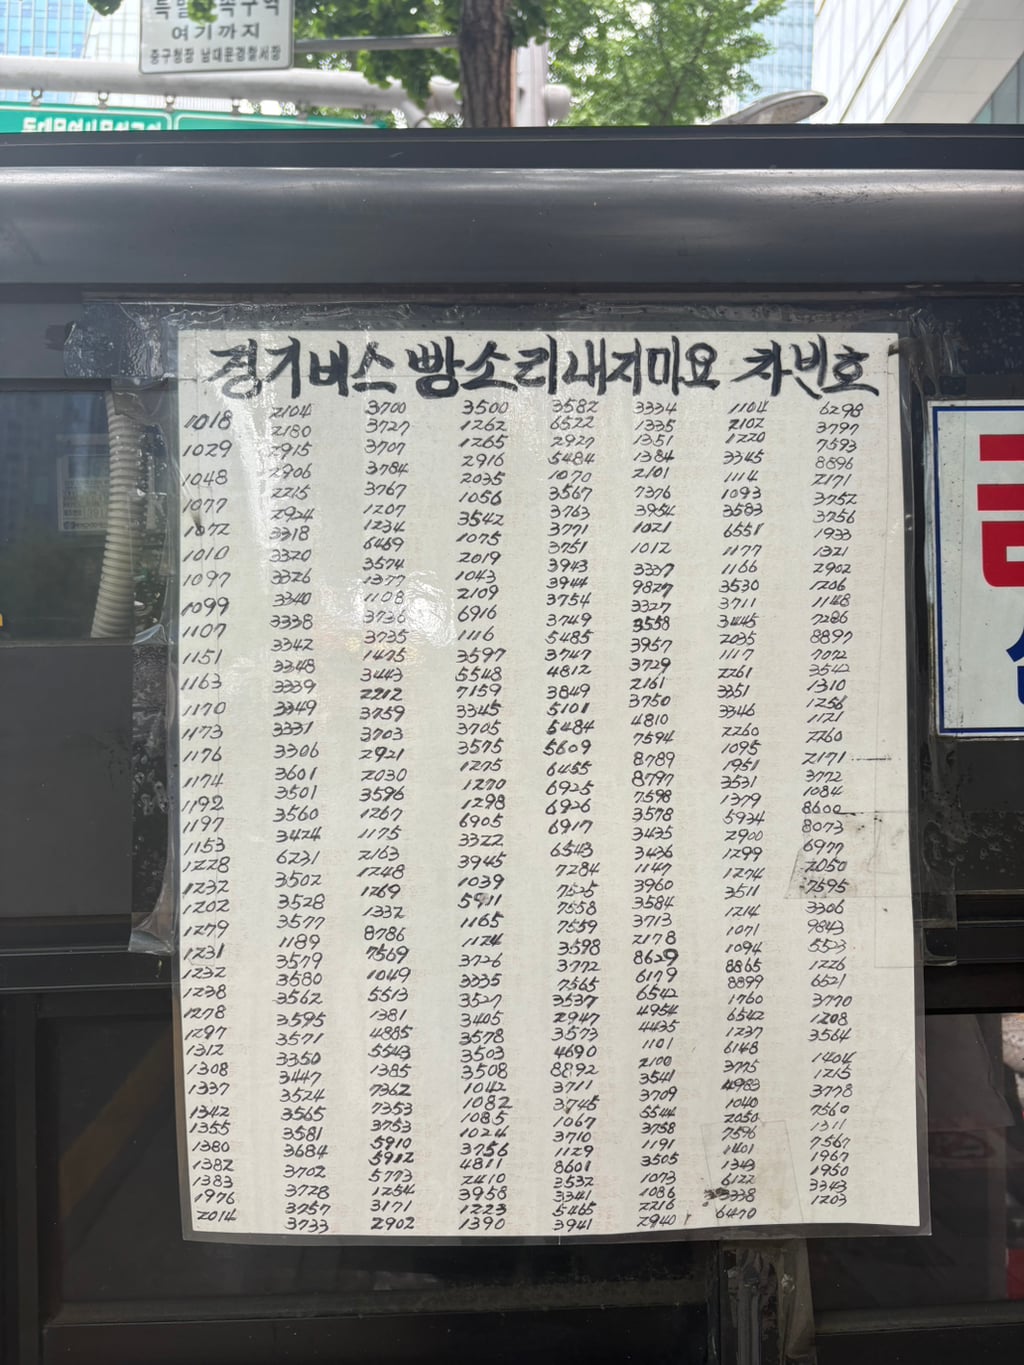 여기까지
중구청장 남대문경찰서장
경기버스 빵소리내지마요 차번호
1018
1029
1048
1077
1072
1010
1097
1099
1107
1151
1163
1170
1173
1176
1174
1192
1197
1153
1228
1232
1202
1279
1231
1232
1238
1278
1297
1312
1308
1337
1342
1355
1380
1382
1383
1976
2014
2104
2180
2915
2906
2215
2924
3318
3320
3326
3340
3338
3342
3348
3339
3349
3331
3306
3601
3501
3560
3424
6231
3502
3528
3577
1189
3579
3580
3562
3595
3571
3350
3447
3524
3565
3581
3684
3702
3728
3757
3733
3700
3727
3707
3784
3767
1207
1234
6469
3574
1377
1108
3736
3735
1475
3443
2212
3759
3703
2921
2030
3596
1267
1175
2163
1248
1269
1332
8786
7569
1049
5513
1381
4885
5543
1385
7362
7353
3753
5910
5912
5773
1254
3171
2902
3500
1262
1265
2916
2035
1056
3542
1075
2019
1043
2109
6916
1116
3597
5548
7159
3345
3705
3575
1275
1270
1298
6905
3322
3945
1039
5911
1165
1124
3726
3335
3527
3405
3578
3503
3508
1042
1082
1085
1024
3756
4811
2410
3958
1223
1390
3582
6522
2927
5484
1070
3567
3763
3771
3751
3943
3944
3754
3749
5485
3747
4812
3849
5101
5484
5609
6455
6925
6926
6917
6543
7284
7525
7558
7559
3598
3772
7565
3537
2947
3573
4690
8892
3711
3745
1067
3710
1129
8601
3532
3341
5465
3941
3334
1335
1351
1384
2101
7376
3954
1021
1012
3337
9827
3327
3558
3957
3729
2161
3750
4810
7594
8789
8797
7598
3578
3435
3436
1147
3960
3584
3713
2178
8629
6179
6542
4954
4435
1101
2100
3541
3709
5544
3758
1191
3505
1073
1086
2216
2940
1104
2102
1220
3345
1114
1093
3583
6551
1177
1166
3530
3711
3445
2035
1117
2261
3351
3346
2260
1095
1951
3531
1379
5934
2900
1299
1274
3511
1214
1071
1094
8865
8899
1760
6542
1237
6148
3775
4983
1040
2050
7596
1401
1343
6122
3338
6470
6298
3797
7593
8896
2171
3752
3756
1933
1321
2902
1206
1148
7286
8897
7072
3542
1310
1256
1121
2260
2171
3772
1084
8600
8073
6977
2050
7595
3306
9843
5523
1226
6521
3770
1208
3564
1404
1215
3778
7560
1311
7567
1967
1950
3343
1203